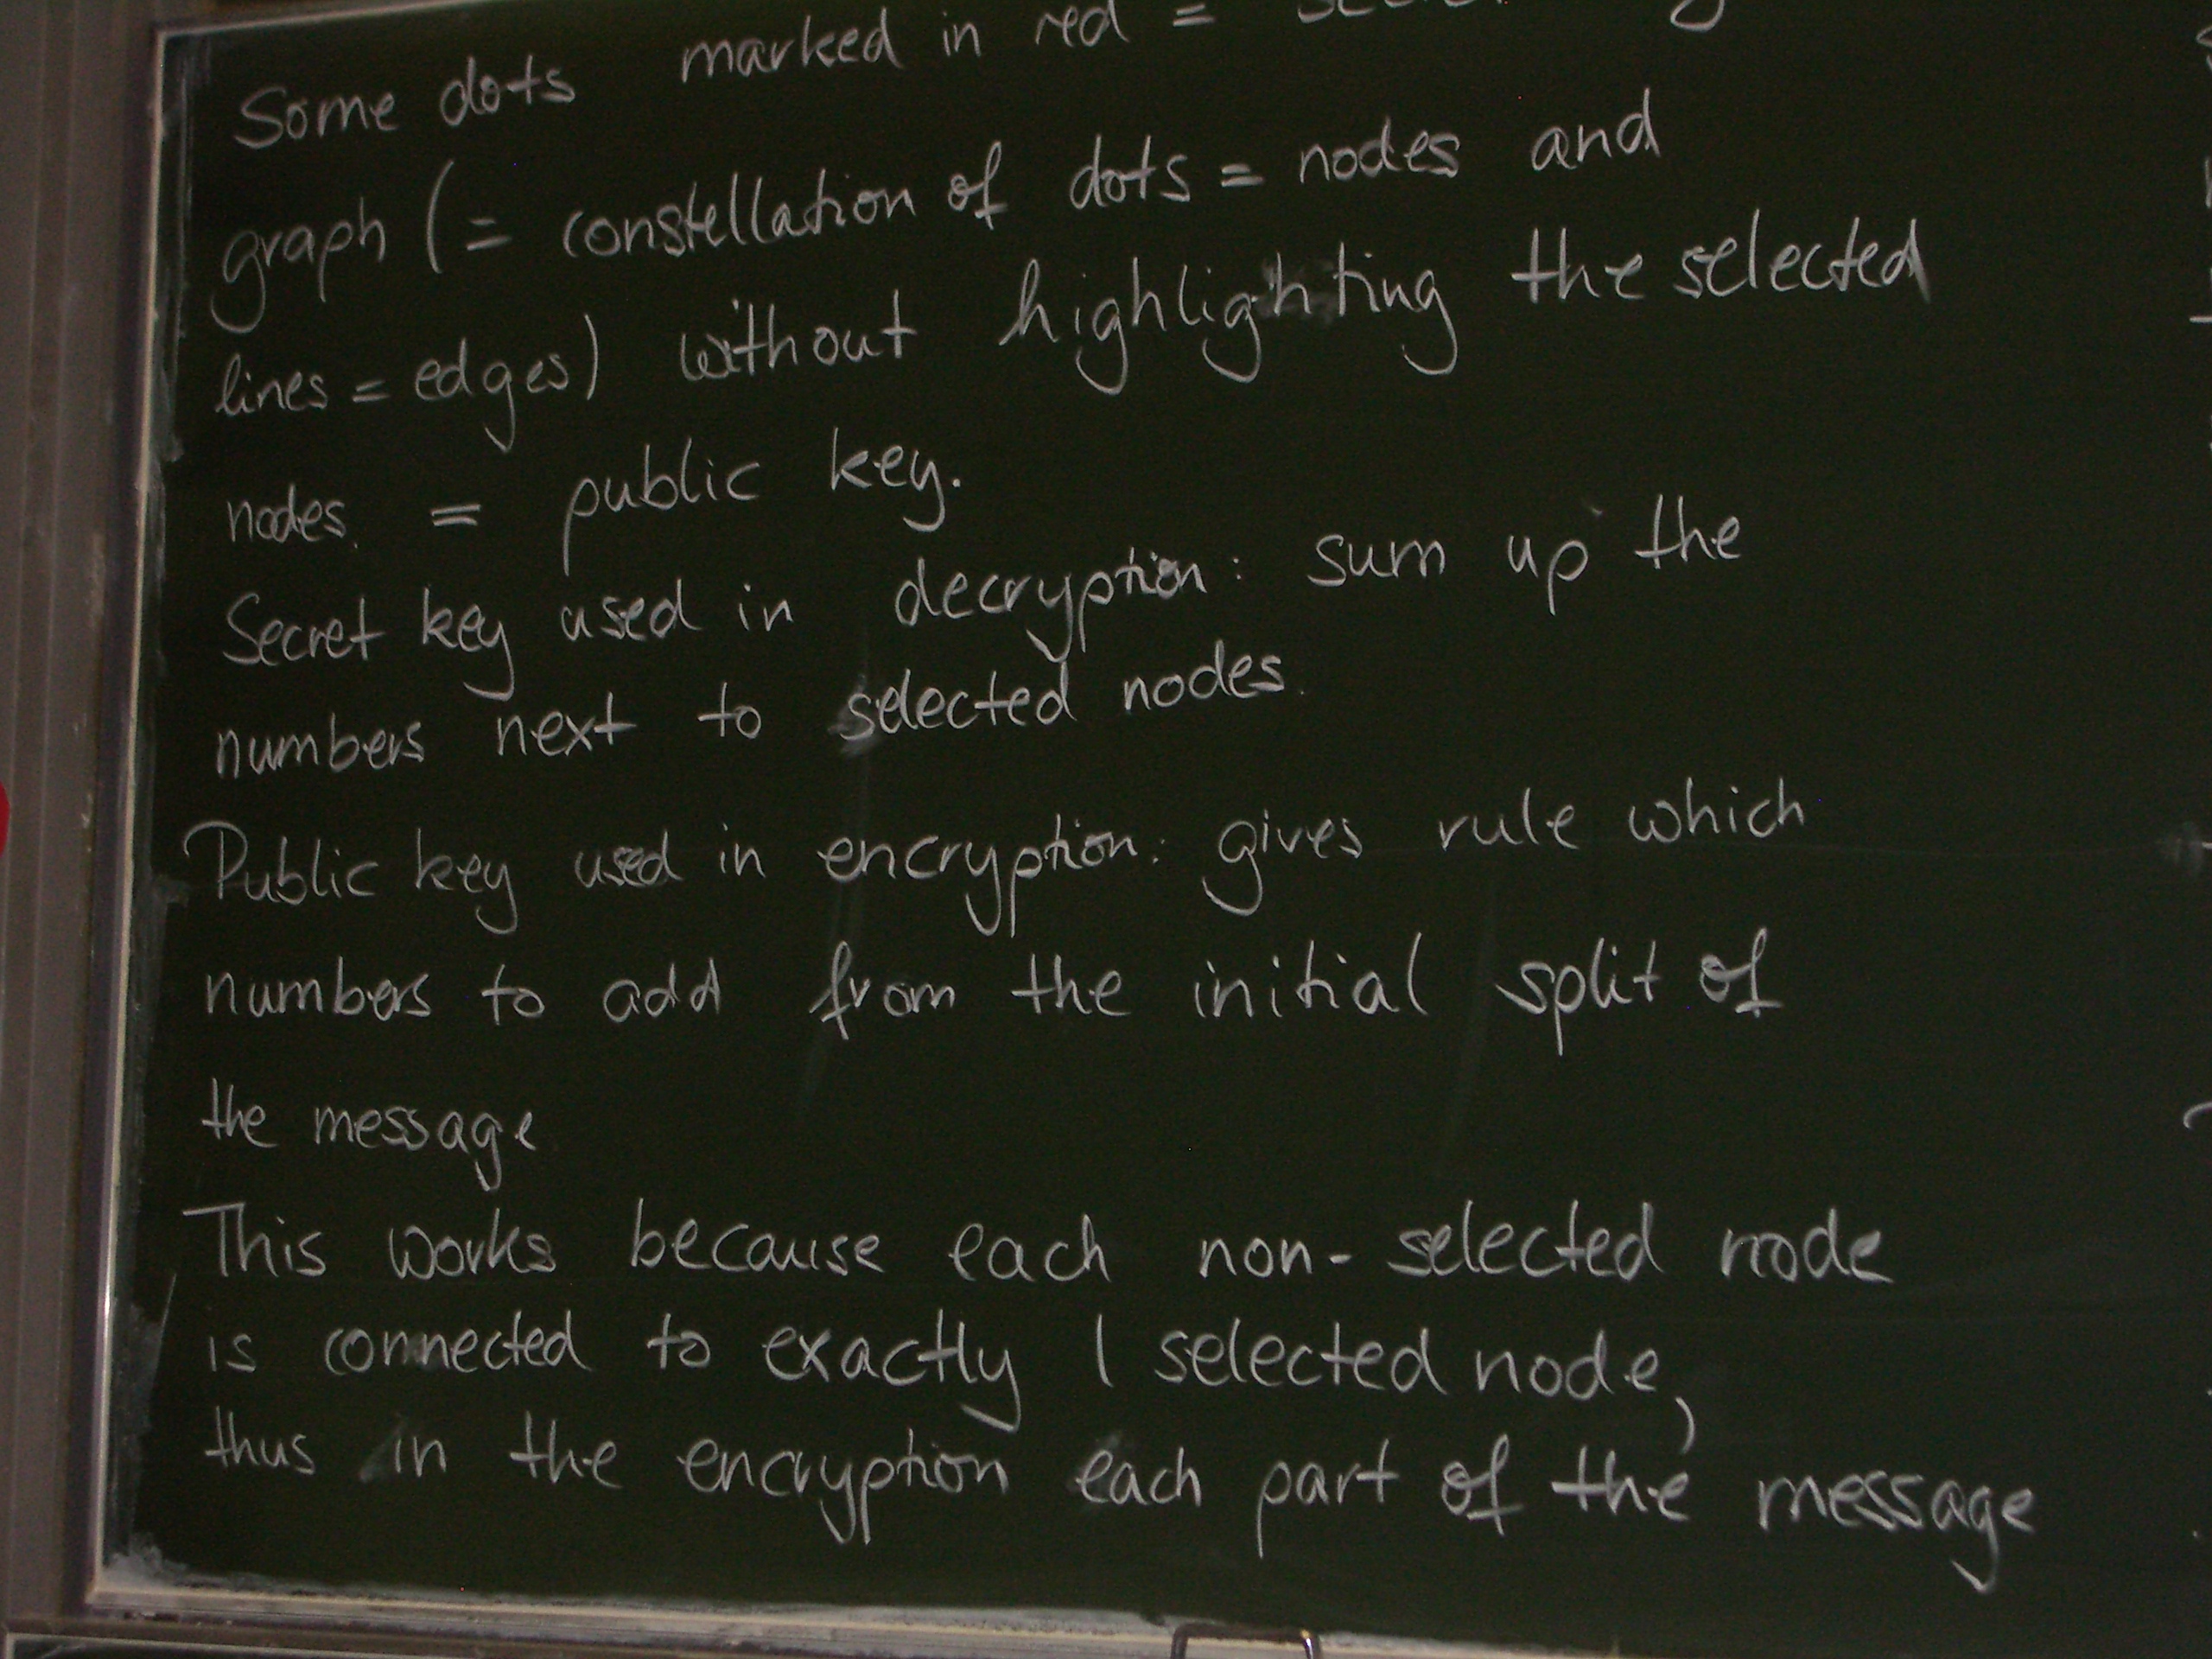 Some dots marked in red =
graph (= constellation of dots = nodes and
lines = edges) without highlighting the selected
nodes. = public key.
Secret key used in decryption: sum up the
numbers next to selected nodes.
Public key used in encryption: gives rule which
numbers to add from the initial split of
the message
This works because each non-selected node
is connected to exactly 1 selected node,
thus in the encryption each part of the message